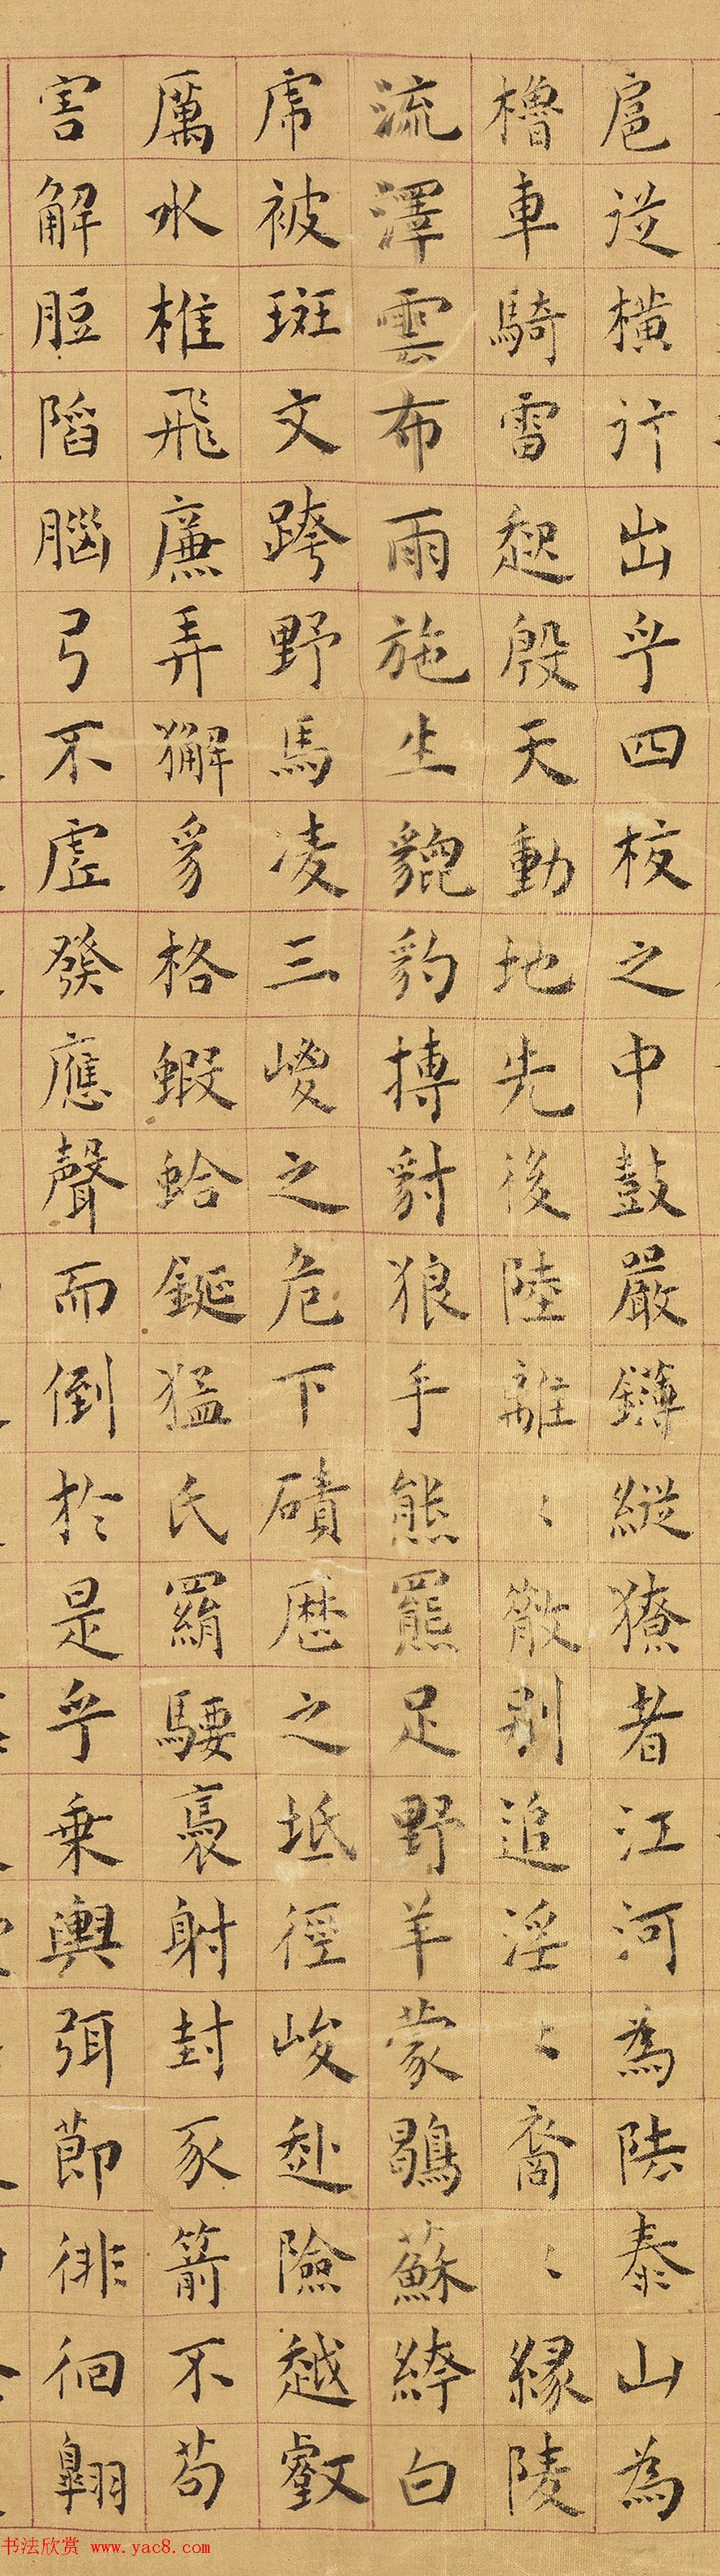 扈從橫行出乎四校之中鼓嚴鐏縱獠者江河為阹泰山為
櫓車騎雷起殷天動地先後陸離〻散別追淫〻裔〻緣陵
流澤雲布雨施生貔豹搏豺狼手熊羆足野羊蒙鶡蘇絝白
虎被斑文跨野馬凌三嵕之危下磧歷之坻徑峻赴險越壑
厲水椎飛廉弄獬豸格蝦蛤鋋猛氏羂騕褭射封豕箭不苟
害解脰陷腦弓不虛發應聲而倒於是乎乘輿弭節徘徊翱
书法欣赏 www.yac8.com